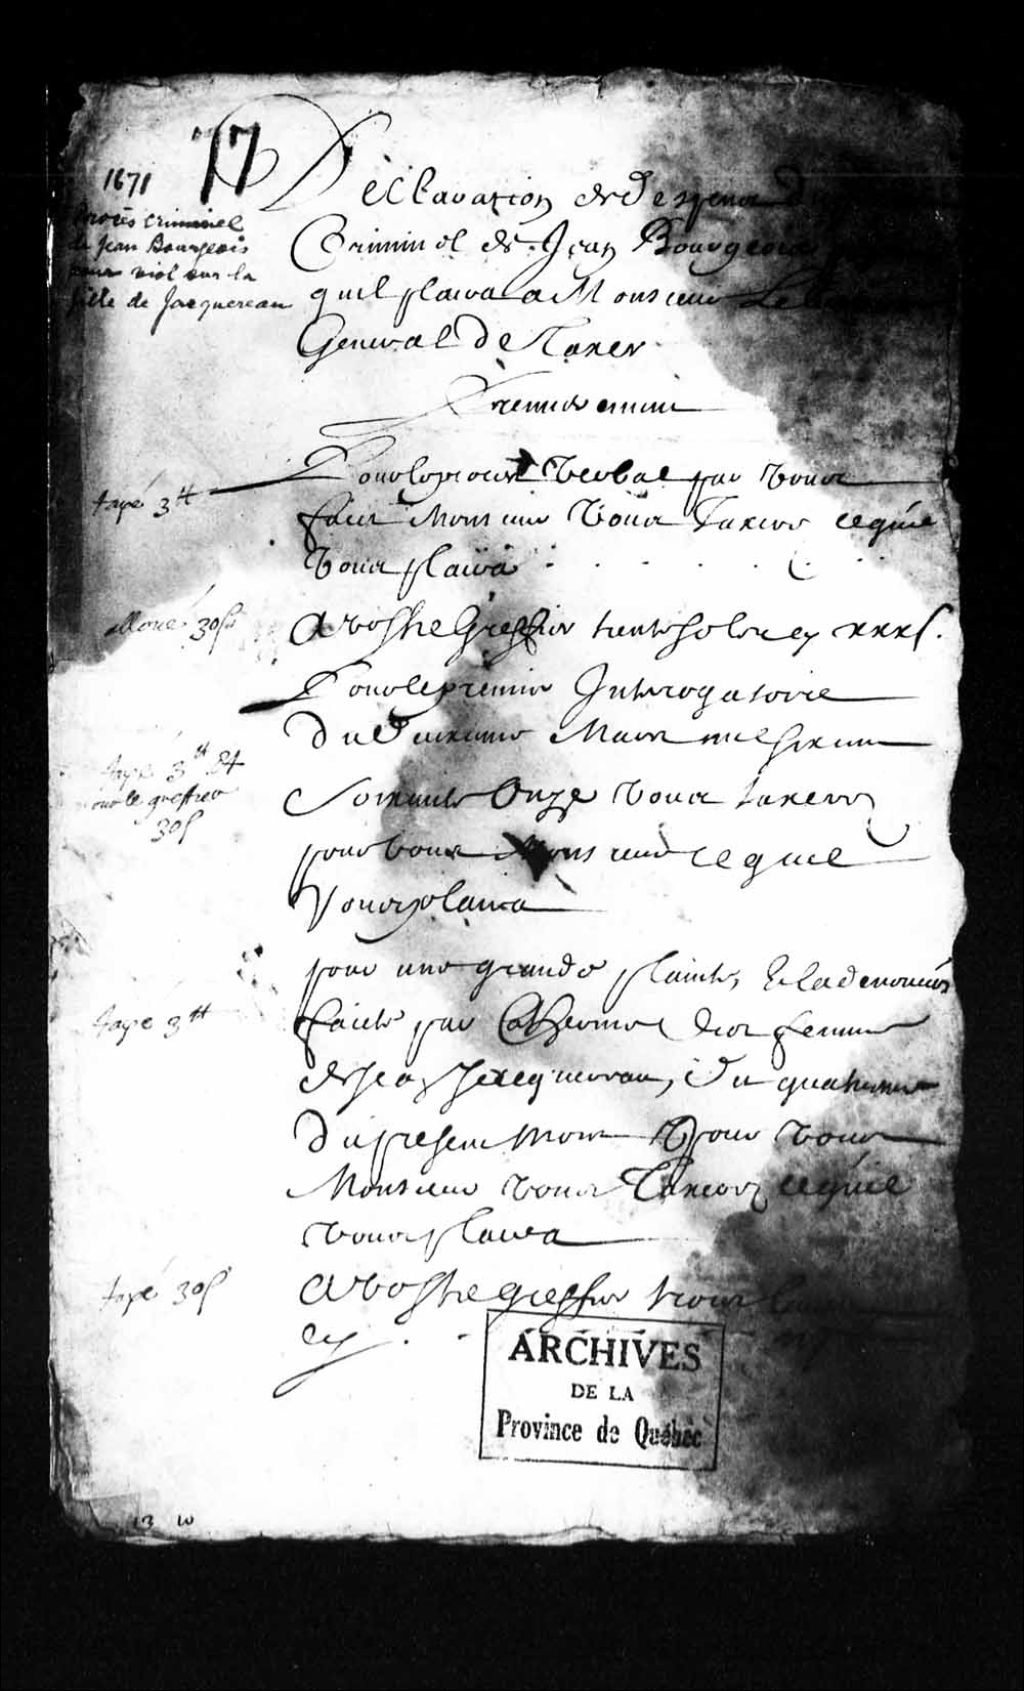 77
1671
Procès criminel
de Jean Bourgeois
pour viol sur la
fille de Jacquereau
Declaration des despens
Criminel de Jean Bourgeois
quil plaira a Monsieur Le
General de Taxer
Premierement
Pour le procest verbal par vous
faict Monsieur vous Taxeres ce quil
vous plaira
taxé 3 ₶
A vostre Greffier trente sols cy xxxs.
alloué 30s
Pour le premier Interogatoire
Du Mars mil six cens
Soixante Onze vous taxerez
pour vous Monsieur ce quil
vous plaira
taxé 3 ₶
pour le greffier
30s
pour une grande plainte, & la
faicte par Catherine femme
de Jean Jacquereau, du quatriesme
Du present Mois & pour vous
Monsieur vous Taxerez ce quil
vous plaira
taxé 3 ₶
A vostre greffier trente
cy
taxé 30s
ARCHIVES
DE LA
Province de Québec